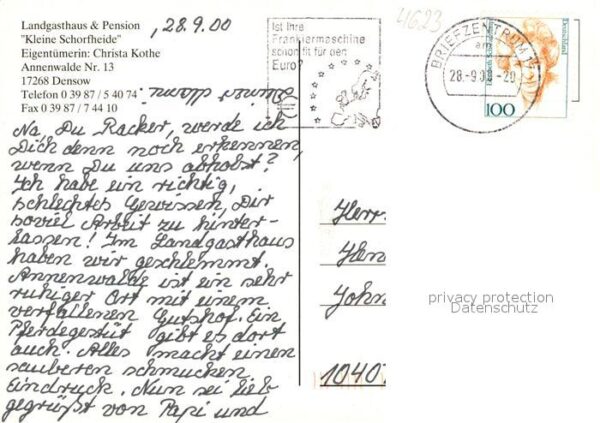 Landgasthaus & Pension
"Kleine Schorfheide"
Eigentümerin: Christa Kothe
Annenwalde Nr. 13
17268 Densow
Telefon 0 39 87 / 5 40 74
Fax 0 39 87 / 7 44 10
, 28.9.00
Na, Du Racker, werde ich
Dich denn noch erkennen,
wenn Du uns abholst?
Ich habe ein richtig,
schlechtes Gewissen, Dir
soviel Arbeit zu hinter-
lassen! Im Landgasthaus
haben wir geschlemmt.
Annenwalde ist ein sehr
ruhiger Ort mit einem
verfallenen Gutshof. Ein
Pferdegestüt gibt es dort
auch. Alles macht einen
sauberen schmucken
Eindruck. Nun sei lieb
gegrüßt von Papi und
Deiner Mami.
Ist Ihre
Frankiermaschine
schon fit für den
Euro?
4623
BRIEFZENTRUM
28.-9.00-20
Deutschland
100
Herr
John
1040
privacy protection
Datenschutz